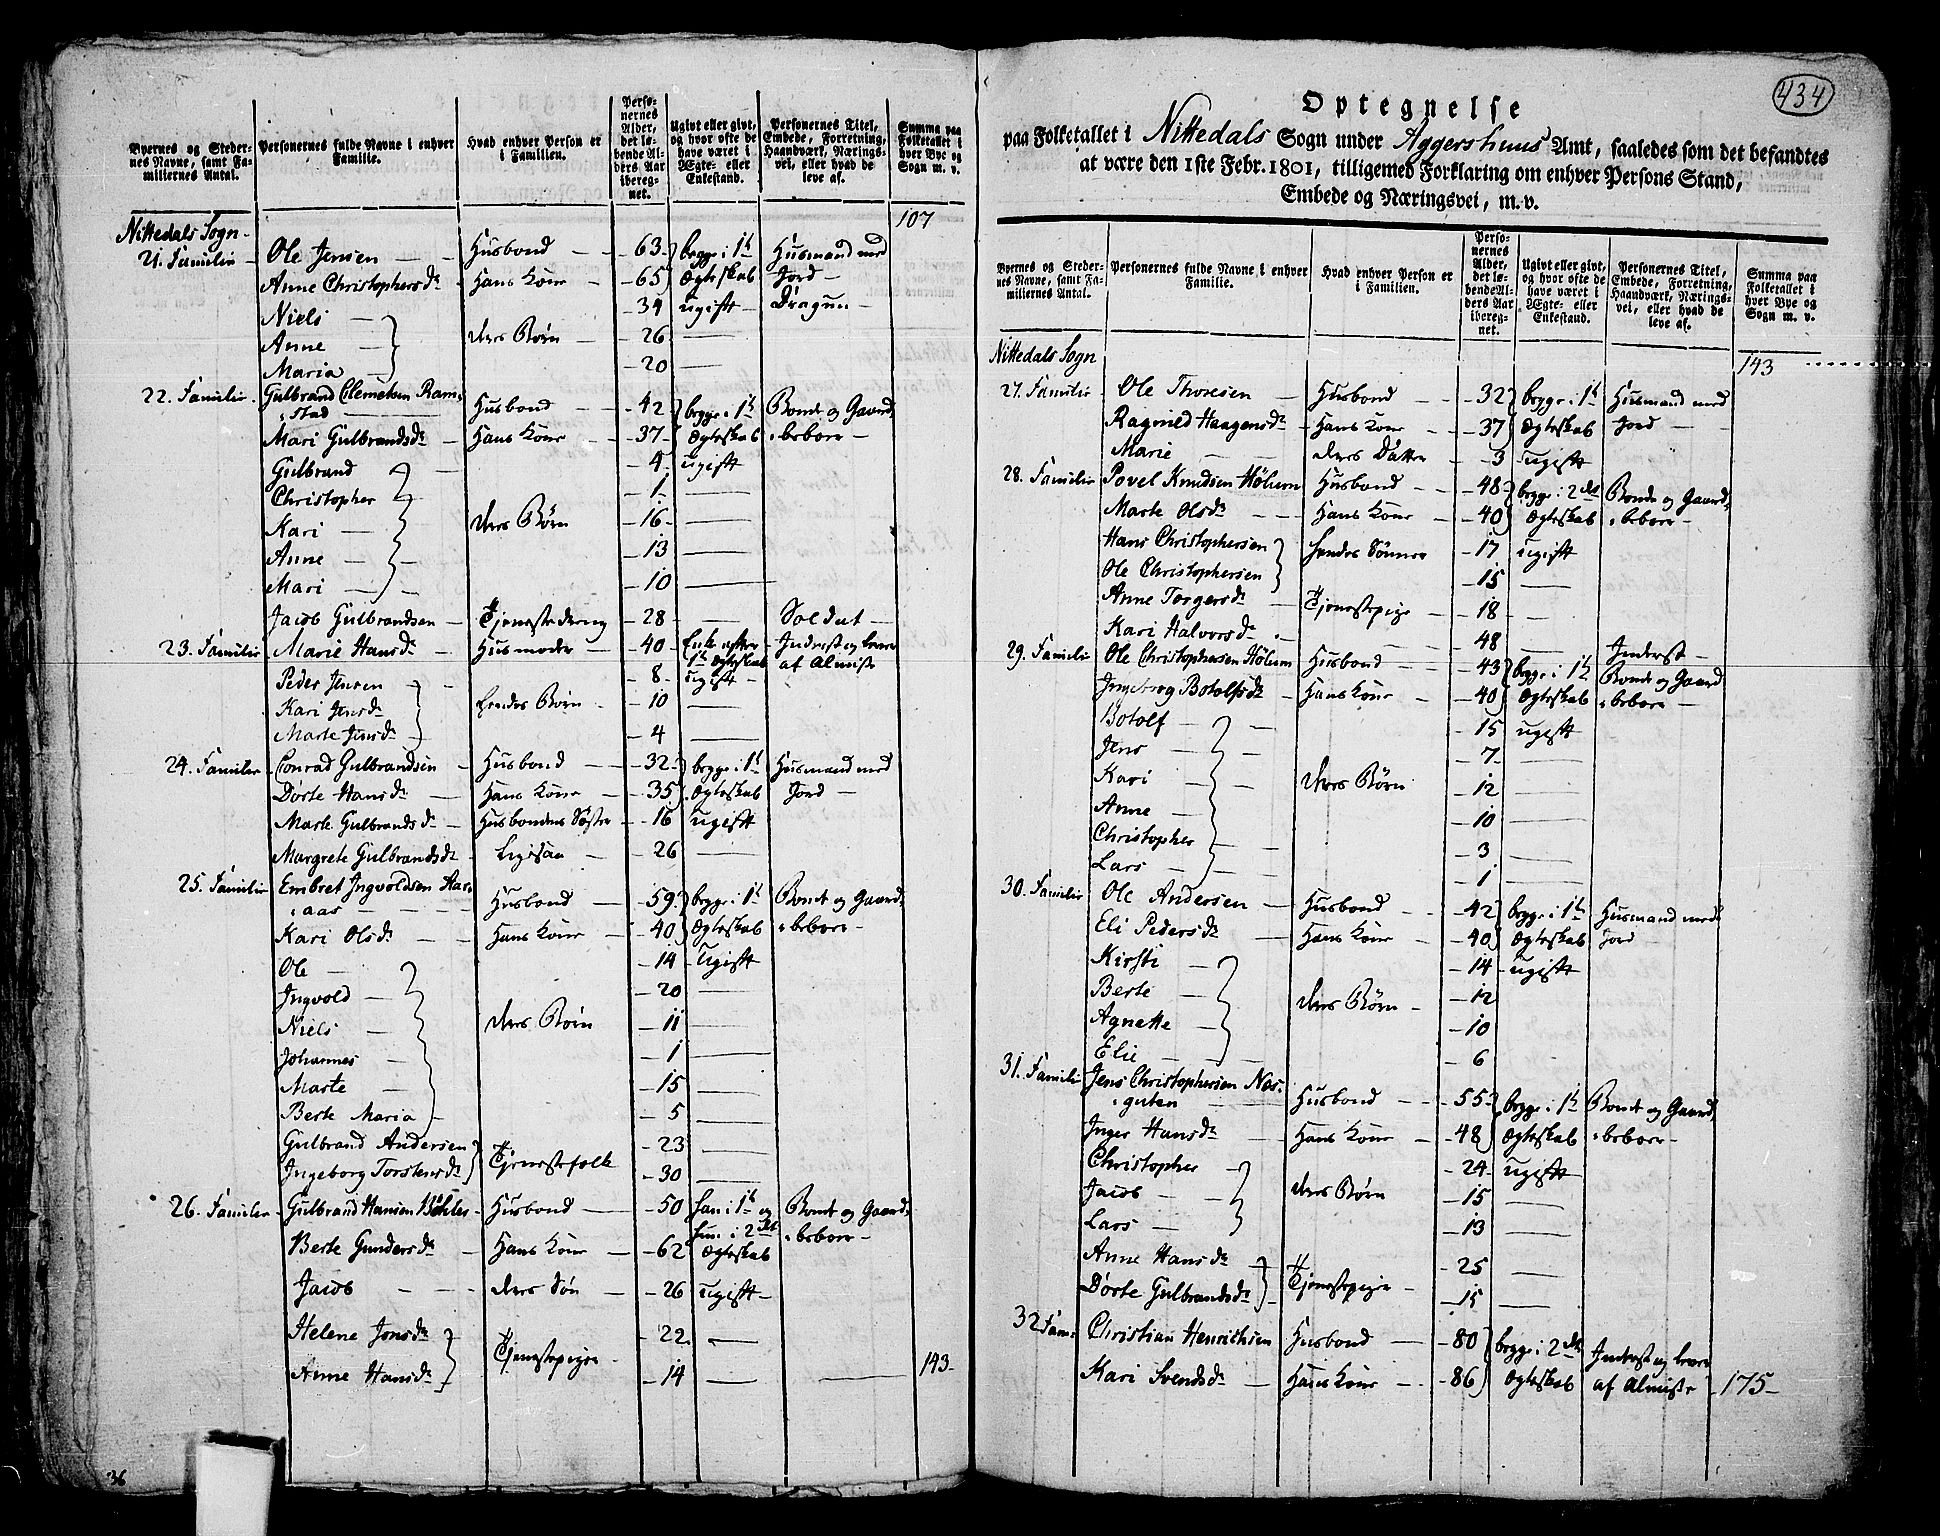 Byernes og Steder-
nes Navne, samt Fa-
miliernes Antal.
Personernes fulde Navne i enhver
Familie.
Hvad enhver Person er
i Familien.
Perso-
nernes
Alder,
det lø-
bende Al-
ders Aar
ibereg-
net.
Ugivt eller givt,
og hvor ofte de
have været i
Ægte- eller
Enkestand.
Personernes Titel,
Embede, Forretning,
Haandværk, Nærings-
vei, eller hvad de
leve af.
Summa paa
Folketallet i
hver Bye og
Sogn m. v.
Nittedals Sogn - 107
21. Familie - Ole Jensen - Husbond - 63 - begge i 1te Husmand med
Anne Christophersdr Hans Kone - 65 Ægteskab Jord -
Niels - 34 ugift - Dragun -
Anne - deres Børn - 26 -
Maria - 20 -
22. Familie - Gulbrand Clemetsen Ram-
stad - Husbond - 42 begge i 1te Bonde og Gaard
Mari Gulbrandsdr - Hans Kone - 37 - Ægteskab beboer -
Gulbrand - 4 ugift
Christopher - 1 -
Kari - deres Børn - 16 -
Anne - 13 -
Mari - 10 -
Jacob Gulbrandsen - Tjenestedreng - 28 - Soldat -
23. Familie - Marie Hansdr - Husmoder - 40 Enke efter Inderst og lever
1te Ægteskab af Almisse
Peder Jensen - 8 - ugift -
Kari Jensdr - hendes Børn - 10 -
Marte Jensdr - 4 -
24. Familie - Conrad Gulbrandsen - Husbond - 32 - begge i 1te Husmand med
Dorte Hansdr - Hans Kone - 35 Ægteskab Jord -
Marte Gulbrandsdr - Husbondens Søster - 16 ugift
Margrete Gulbrandsdr - Ligesaa - 26 -
25. Familie Embret Ingvoldsen Aas-
aas - Husbond - 59 begge i 1te Bonde og Gaard
Kari Olsdr - Hans Kone - 40 Ægteskab beboer -
Ole - 14 - ugift
Ingvold - 20 -
Niels - deres Børn - 11 -
Johannes - 1 -
Marte - 15 -
Berte Maria - 5 -
Gulbrand Andersen Tjenestefolk - 23 -
Ingeborg Torstensdr - 30 -
26. Familie - Gulbrand Hansen Bøhler - Husbond - 50 han i 1te og Bonde og Gaard
hun i 2det beboer -
Berte Gundersdr - Hans Kone - 62 Ægteskab
Jacob - deres Søn - 26 ugift -
Helene Jonsdr - 22 -
Tjenestepiger -
Anne Hansdr - 14 - 143 -
36
434
Optegnelse
paa Folketallet i Nittedals Sogn under Aggershuus Amt, saaledes som det befandtes
at være den 1ste Febr. 1801, tilligemed Forklaring om enhver Persons Stand,
Embede og Næringsvei, m. v.
Byernes og Steder-
nes Navne, samt Fa-
miliernes Antal.
Personernes fulde Navne i enhver
Familie.
Hvad enhver Person er
i Familien.
Perso-
nernes
Alder,
det lø-
bende Al-
ders Aar
ibereg-
net.
Ugivt eller givt,
og hvor ofte de
have været i
Ægte- eller
Enkestand.
Personernes Titel,
Embede, Forretning,
Haandværk, Nærings-
vei, eller hvad de
leve af.
Summa paa
Folketallet i
hver Bye og
Sogn m. v.
Nittedals Sogn 143
27. Familie Ole Thoresen - Husbond - 32 begge i 1te Husmand med
Ragnild Haagensdr - Hans Kone - 37 Ægteskab Jord -
Marie - deres Datter - 3 ugift
28. Familie Povel Knudsen Hølum Husbond - 48 - begge i 2det Bonde og Gaard
Marte Olsdr - Hans Kone - 40 Ægteskab beboer -
Hans Christophersen hendes Sønner - 17 ugift
Ole Christophersen - 15 -
Anne Torgersdr - Tjenestepige - 18 -
Kari Halvorsdr - 48 - Inderst -
29. Familie Ole Christophersen Hølum Husbond - 43 begge i 1te Bonde og Gaard
Ingeborg Botolfsdr - Hans Kone - 40 Ægteskab beboer -
Botolf - 15 ugift
Jens - 7 -
Kari - deres Børn - 12 -
Anne - 10 -
Christopher - 3 -
Lars - 1 -
30. Familie Ole Andersen - Husbond - 42 begge i 1te Husmand med
Eli Pedersdr - Hans Kone - 40 Ægteskab Jord -
Kirsti - 14 - ugift
Berte - deres Børn - 12 -
Agnette - 10 -
Elie - 6 -
31. Familie Jens Christophersen Nas-
guten - Husbond - 55 - begge i 1te Bonde og Gaard
Inger Hansdr - Hans Kone - 48 Ægteskab beboer -
Christopher - 24 - ugift
Jacob - deres Børn - 15 -
Lars - 13 -
Anne Hansdr - 25 -
Dorte Gulbrandsdr - Tjenestepiger - 15 -
32 Fam. Christian Henrichsen Husbond - 80 begge i 2det Inderst og lever
Kari Svendsdr - Hans Kone - 86 Ægteskab af Almisse - 175 -